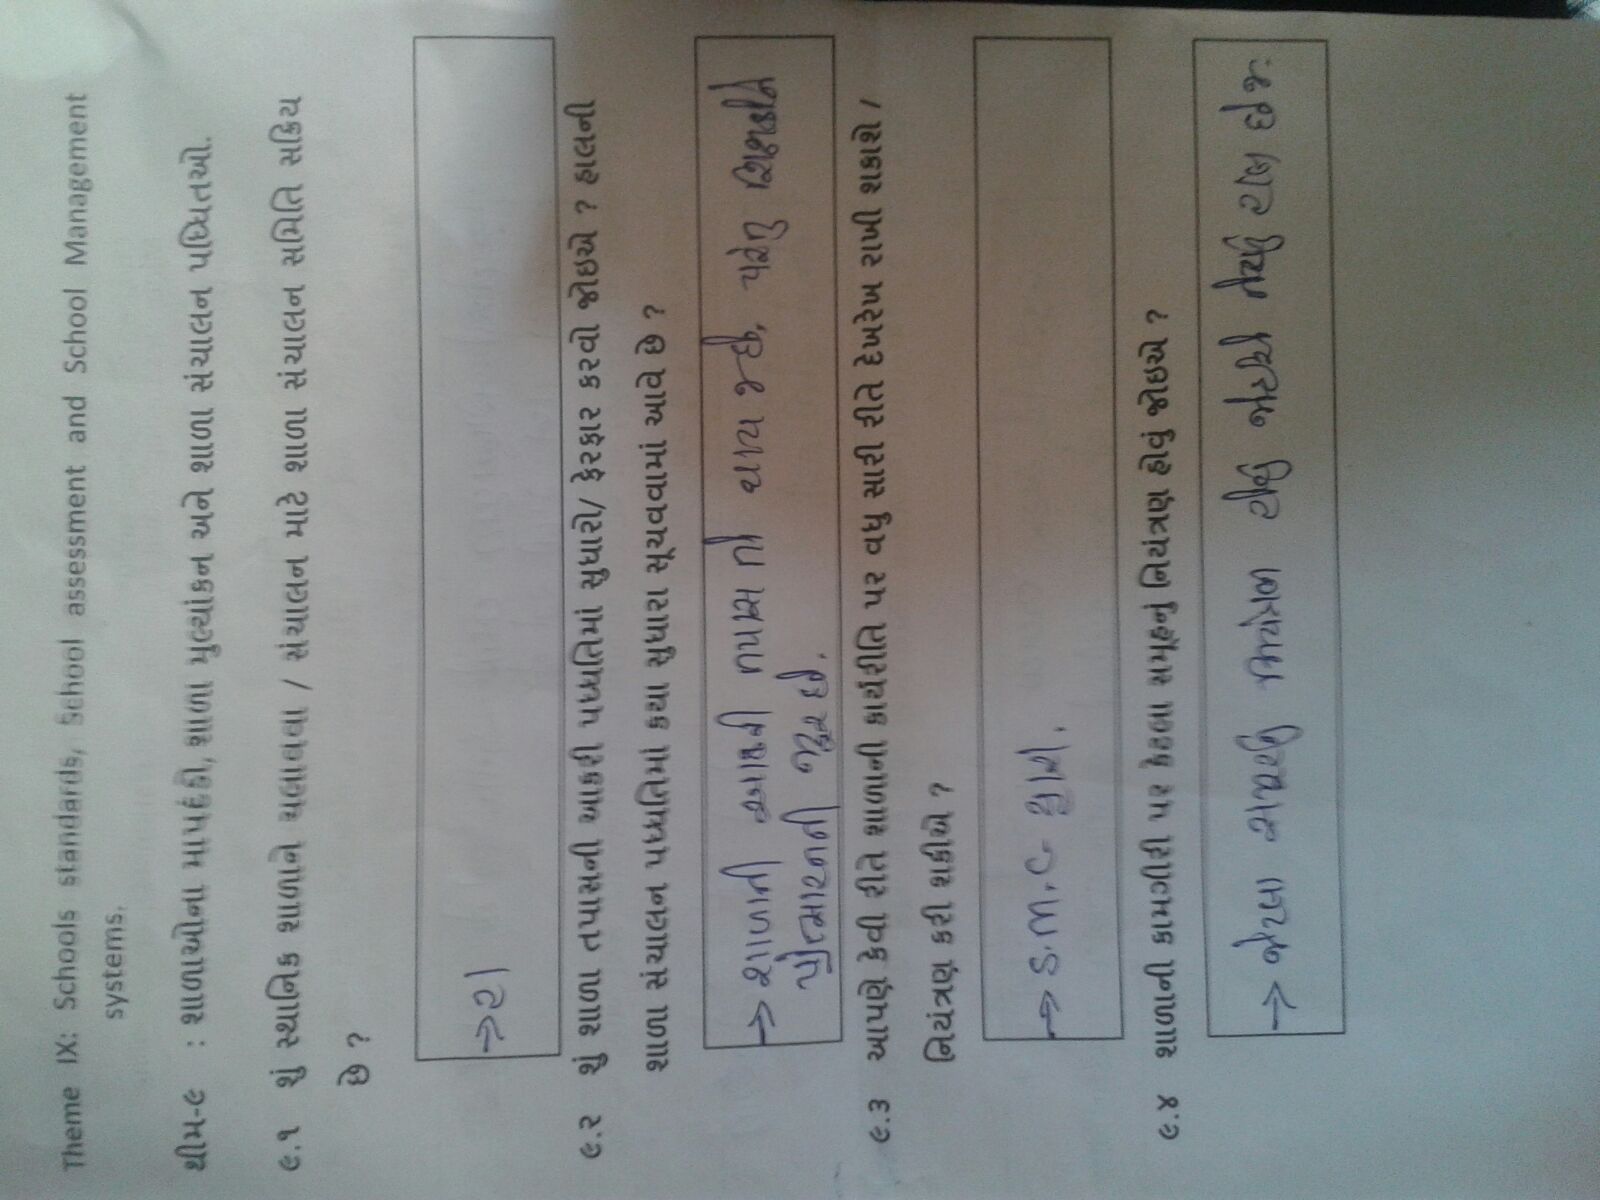 Theme IX: Schools standards, School assessment and School Management
systems.
થીમ-૯ : શાળાઓના માપદંડો, શાળા મુલ્યાંકન અને શાળા સંચાલન પધ્ધિતઓ.
૯.૧ શું સ્થાનિક શાળાને ચલાવવા / સંચાલન માટે શાળા સંચાલન સમિતિ સક્રિય
છે ?
→ હા
૯.૨ શું શાળા તપાસની આકરી પધ્ધતિમાં સુધારો/ ફેરફાર કરવો જોઇએ ? હાલની
શાળા સંચાલન પધ્ધતિમાં કયા સુધારા સૂચવવામાં આવે છે ?
→ શાળાની આકરી તપાસ તો થાય જ છે, પરંતુ શિક્ષકોને
પ્રોત્સાહનની જરૂર છે.
૯.૩ આપણે કેવી રીતે શાળાની કાર્યરીતિ પર વધુ સારી રીતે દેખરેખ રાખી શકાશે /
નિયંત્રણ કરી શકીએ ?
→ S.M.C દ્વારા.
૯.૪ શાળાની કામગીરી પર કેટલા સમૂહનું નિયંત્રણ હોવું જોઇએ ?
→ જેટલા સમૂહનું નિયંત્રણ હોવું જોઈએ તેટલું હાલ છે જ.